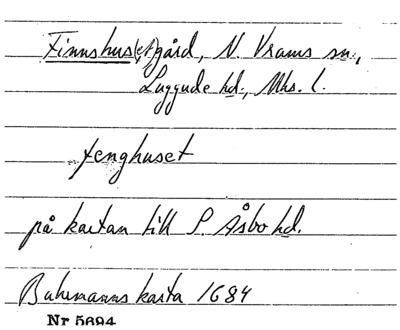 Finnshus(et) gård, N. Vrams sn.,
Luggude hd., Mhs. l.
fenghuset
på kartan till S. Åsbo hd.
Buhrmanns karta 1684
Nr 5694